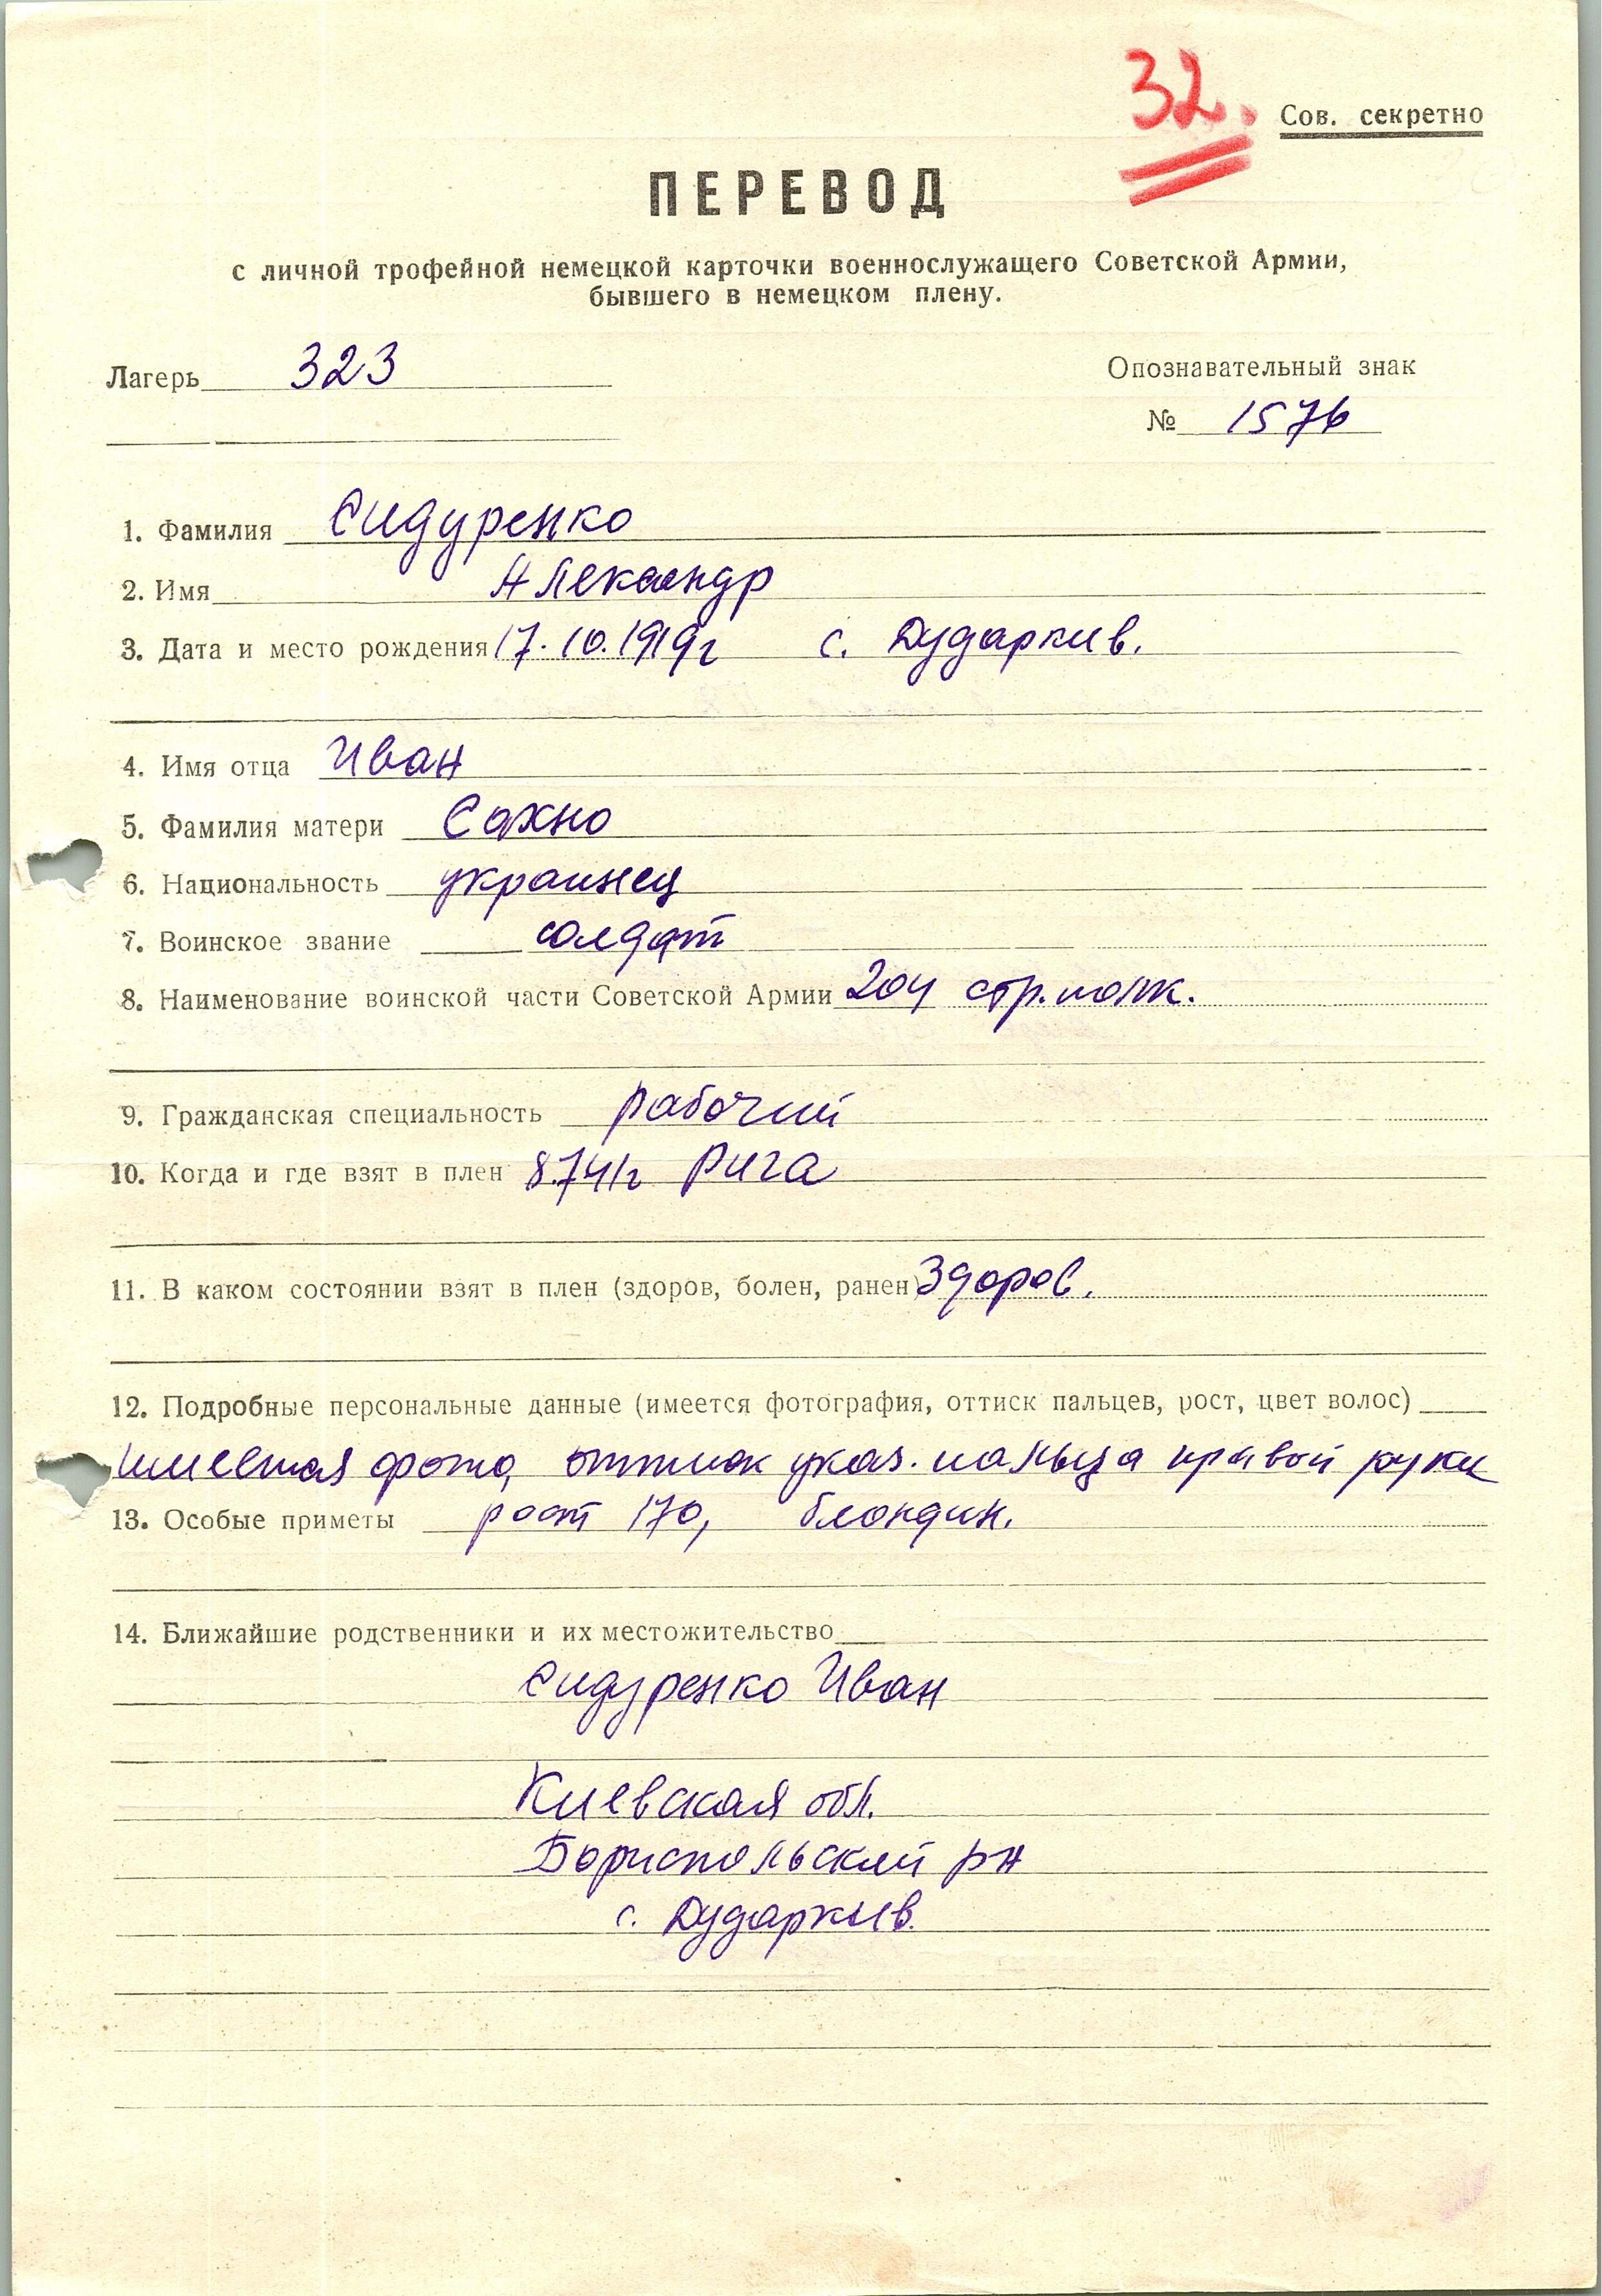 32.
Сов. секретно
ПЕРЕВОД
с личной трофейной немецкой карточки военнослужащего Советской Армии,
бывшего в немецком плену.
Лагерь 323
Опознавательный знак
№ 1576
1. Фамилия Сидуренко
2. Имя Александр
3. Дата и место рождения 17.10.1919г с. Дударкив.
4. Имя отца Иван
5. Фамилия матери Сахно
6. Национальность украинец
7. Воинское звание солдат
8. Наименование воинской части Советской Армии 204 стр.полк.
9. Гражданская специальность рабочий
10. Когда и где взят в плен 8.7.41г Рига
11. В каком состоянии взят в плен (здоров, болен, ранен) Здоров.
12. Подробные персональные данные (имеется фотография, оттиск пальцев, рост, цвет волос)
имеется фото, оттиск указ. пальца правой руки
13. Особые приметы рост 170, блондин.
14. Ближайшие родственники и их местожительство
Сидуренко Иван
Киевская обл.
Бориспольский рн
с. Дударкив.